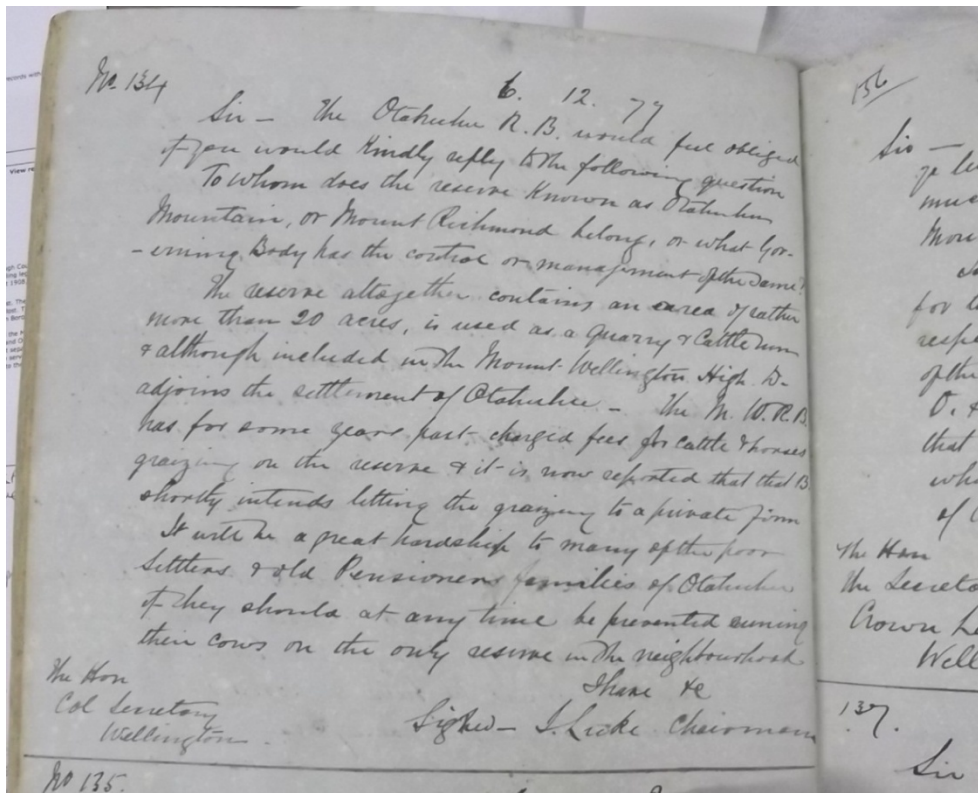 No. 134
6. 12. 77
Sir — The Otahuhu R. B. would feel obliged
if you would Kindly reply to the following question
To whom does the reserve Known as Otahuhu
Mountain, or Mount Richmond belong, or what Gov-
-erning Body has the control or management of the same?
The reserve altogether contains an area of rather
more than 20 acres, is used as a quarry & Cattle run
& although included in the Mount Wellington High. D-
adjoins the settlement of Otahuhu — The M. W. R. B.
has for some years past charged fees for cattle & horses
graizing on the reserve & it is now reported that that B
shortly intends letting the graizing to a private firm
It will be a great hardship to many of the poor
Settlers & old Pensioners families of Otahuhu
if they should at any time be prevented running
their cows on the only reserve in the neighbourhood
I have &c
Signed — Chairman
The Hon
Col Secretary
Wellington
No 135.
136
Sir —
for
of the
O. &
that
of
The Hon
the
Crown
137.
Sir